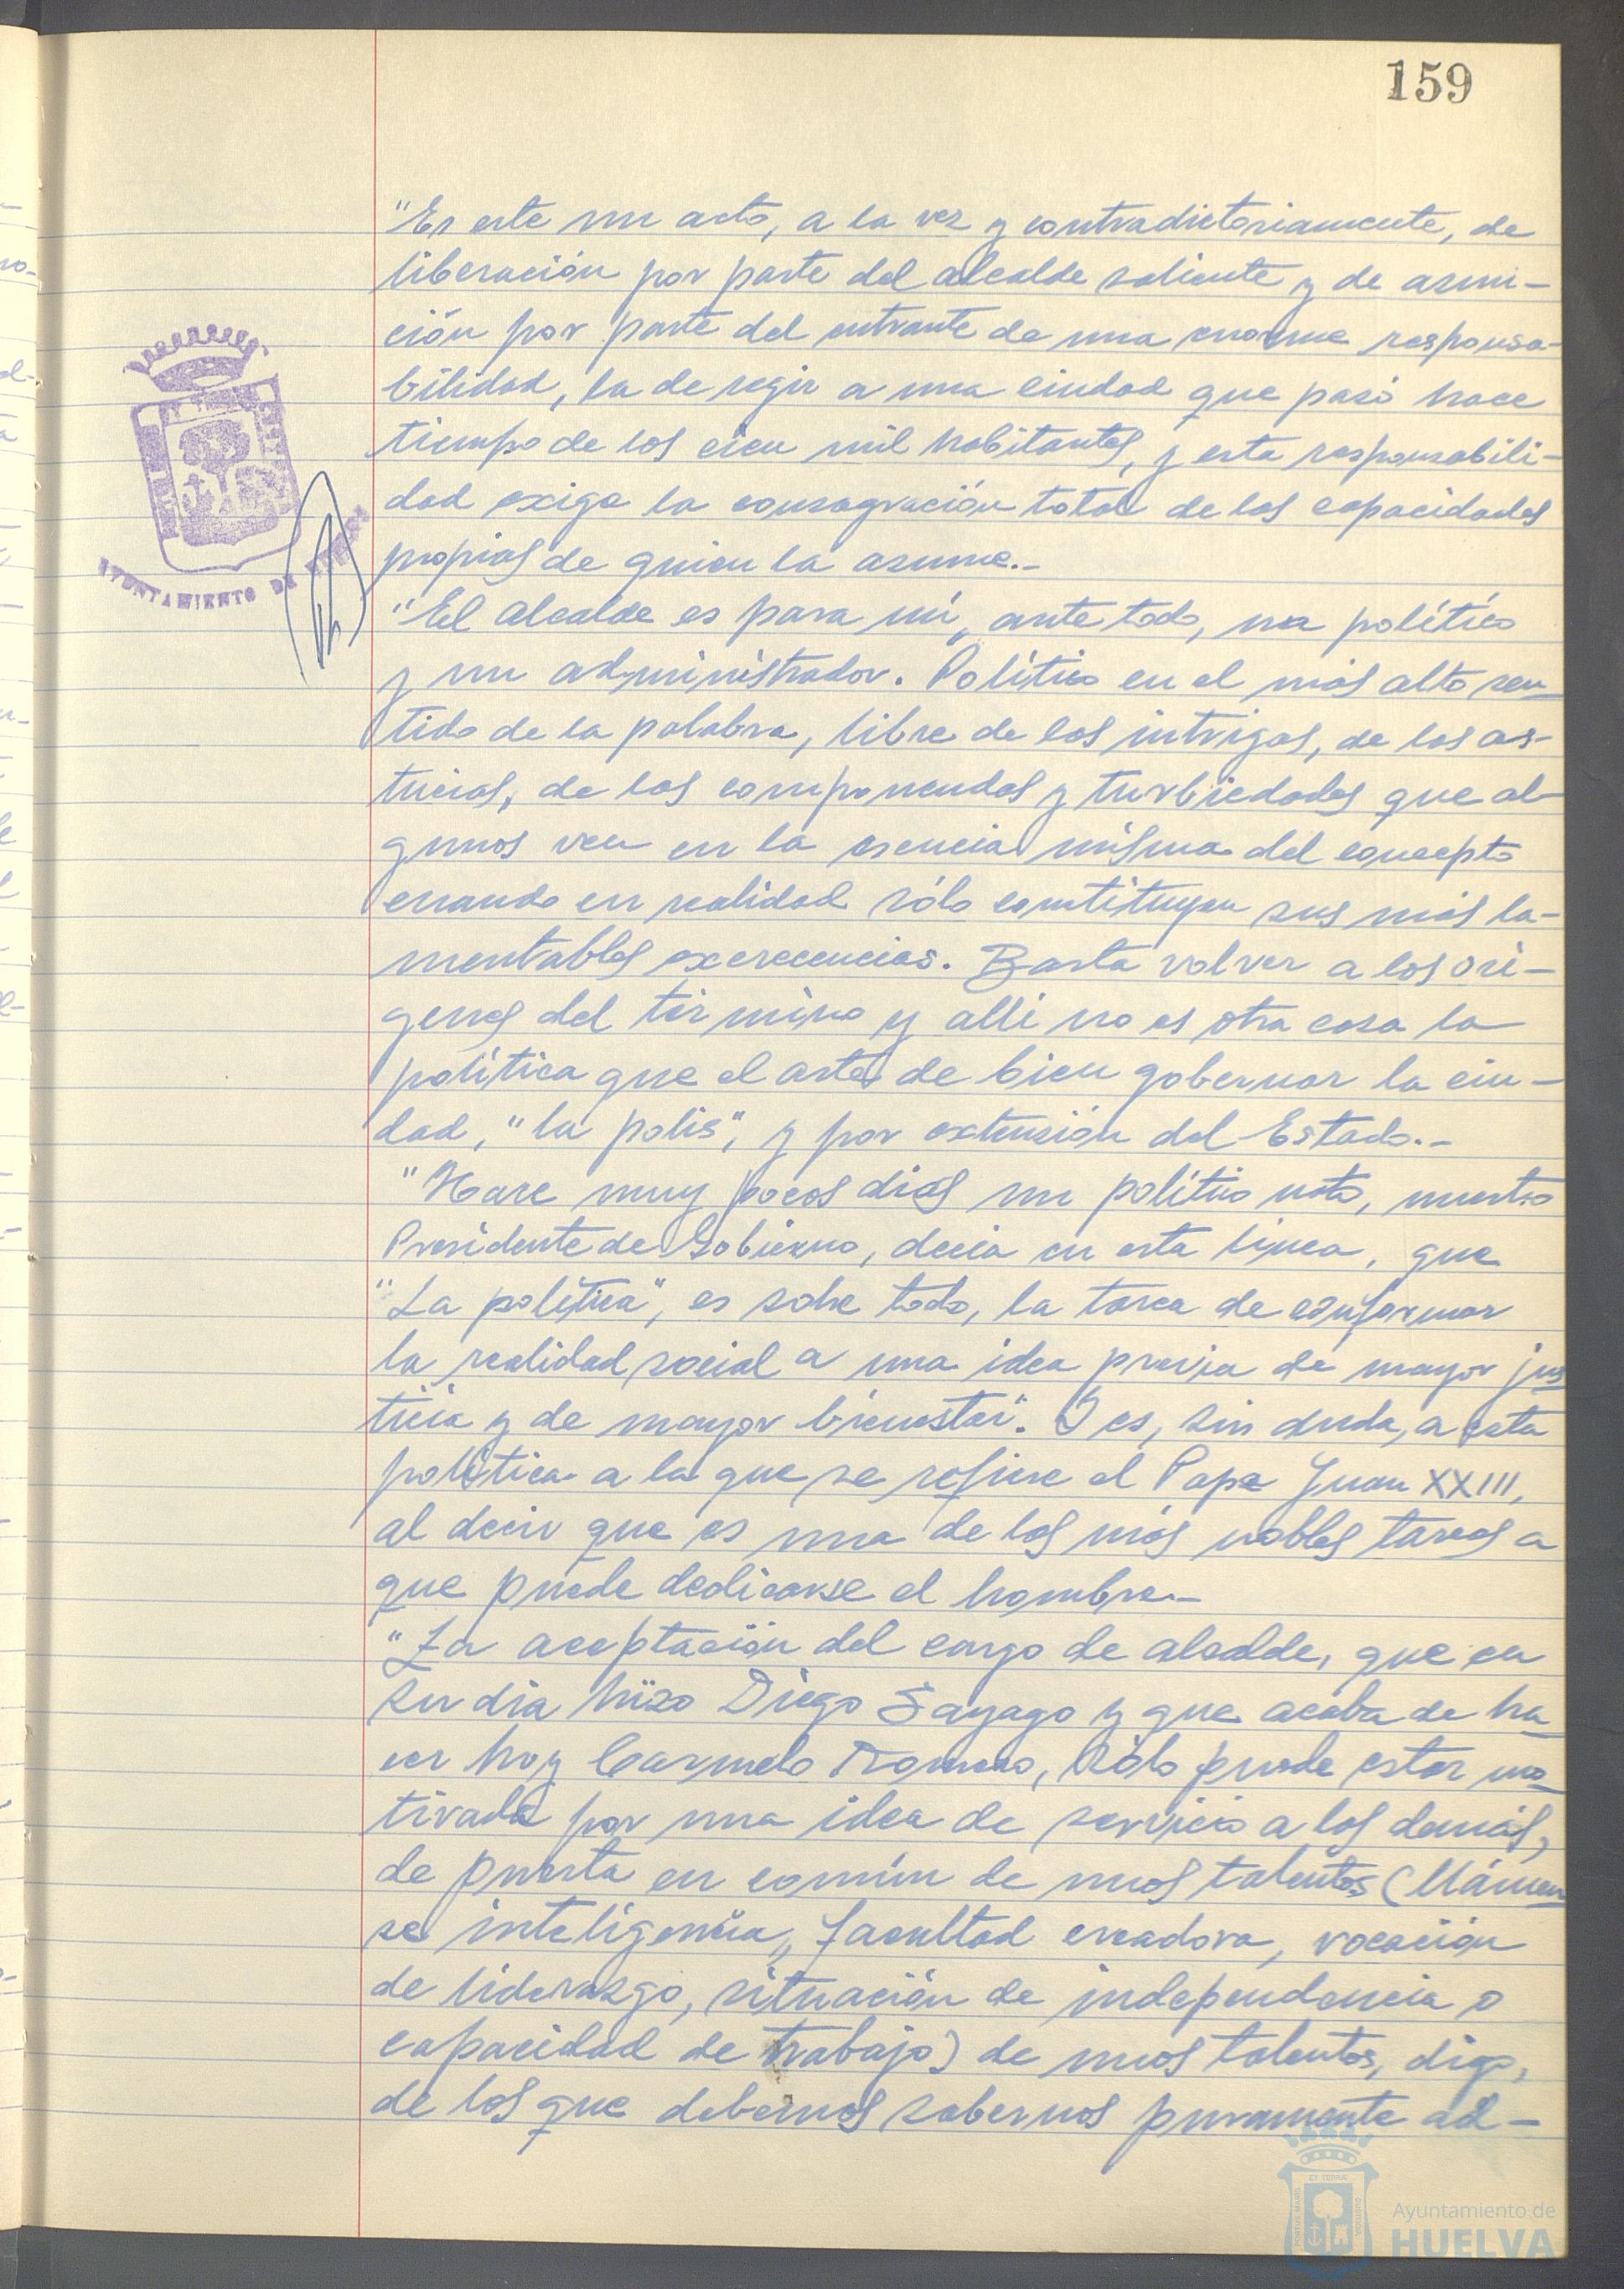 159
"Es este un acto, a la vez y contradictoriamente, de
liberación por parte del alcalde saliente y de asun-
ción por parte del entrante de una enorme responsa-
bilidad, la de regir a una ciudad que pasó hace
tiempo de los cien mil habitantes, y esta responsabili-
dad exige la consagración total de las capacidades
propias de quien la asume.-
"El alcalde es para mí, ante todo, un político
y un administrador. Político en el más alto sen-
tido de la palabra, libre de las intrigas, de las as-
tucias, de las componendas y turbiedades que al-
gunos ven en la esencia misma del concepto
cuando en realidad sólo constituyen sus más la-
mentables excrecencias. Basta volver a los orí-
genes del término y allí no es otra cosa la
política que el arte de bien gobernar la ciu-
dad, "la polis", y por extensión del Estado.-
"Hace muy pocos días un político nato, nuestro
Presidente de Gobierno, decía en esta línea, que
"La política", es sobre todo, la tarea de conformar
la realidad social a una idea previa de mayor jus
ticia y de mayor bienestar". Y es, sin duda, a esta
política a la que se refiere el Papa Juan XXIII,
al decir que es una de las más nobles tareas a
que puede dedicarse el hombre.-
"La aceptación del cargo de alcalde, que en
su día hizo Diego Sayago y que acaba de ha
cer hoy Carmelo Romero, sólo puede estar mo
tivada por una idea de servicio a los demás,
de puesta en común de unos talentos (llámen
se inteligencia, facultad creadora, vocación
de liderazgo, situación de independencia o
capacidad de trabajo) de unos talentos, digo,
de los que debemos sabernos puramente ad-
AYUNTAMIENTO DE HUELVA
Ayuntamiento de
HUELVA